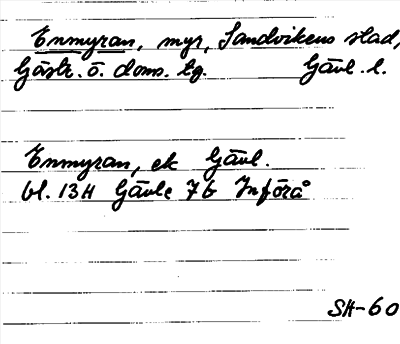 Enmyran, myr, Sandvikens stad,
Gästr. ö. doms. tg. Gävl. l.
Enmyran, ek Gävl.
bl. 13H Gävle 7b Införå
SH-60